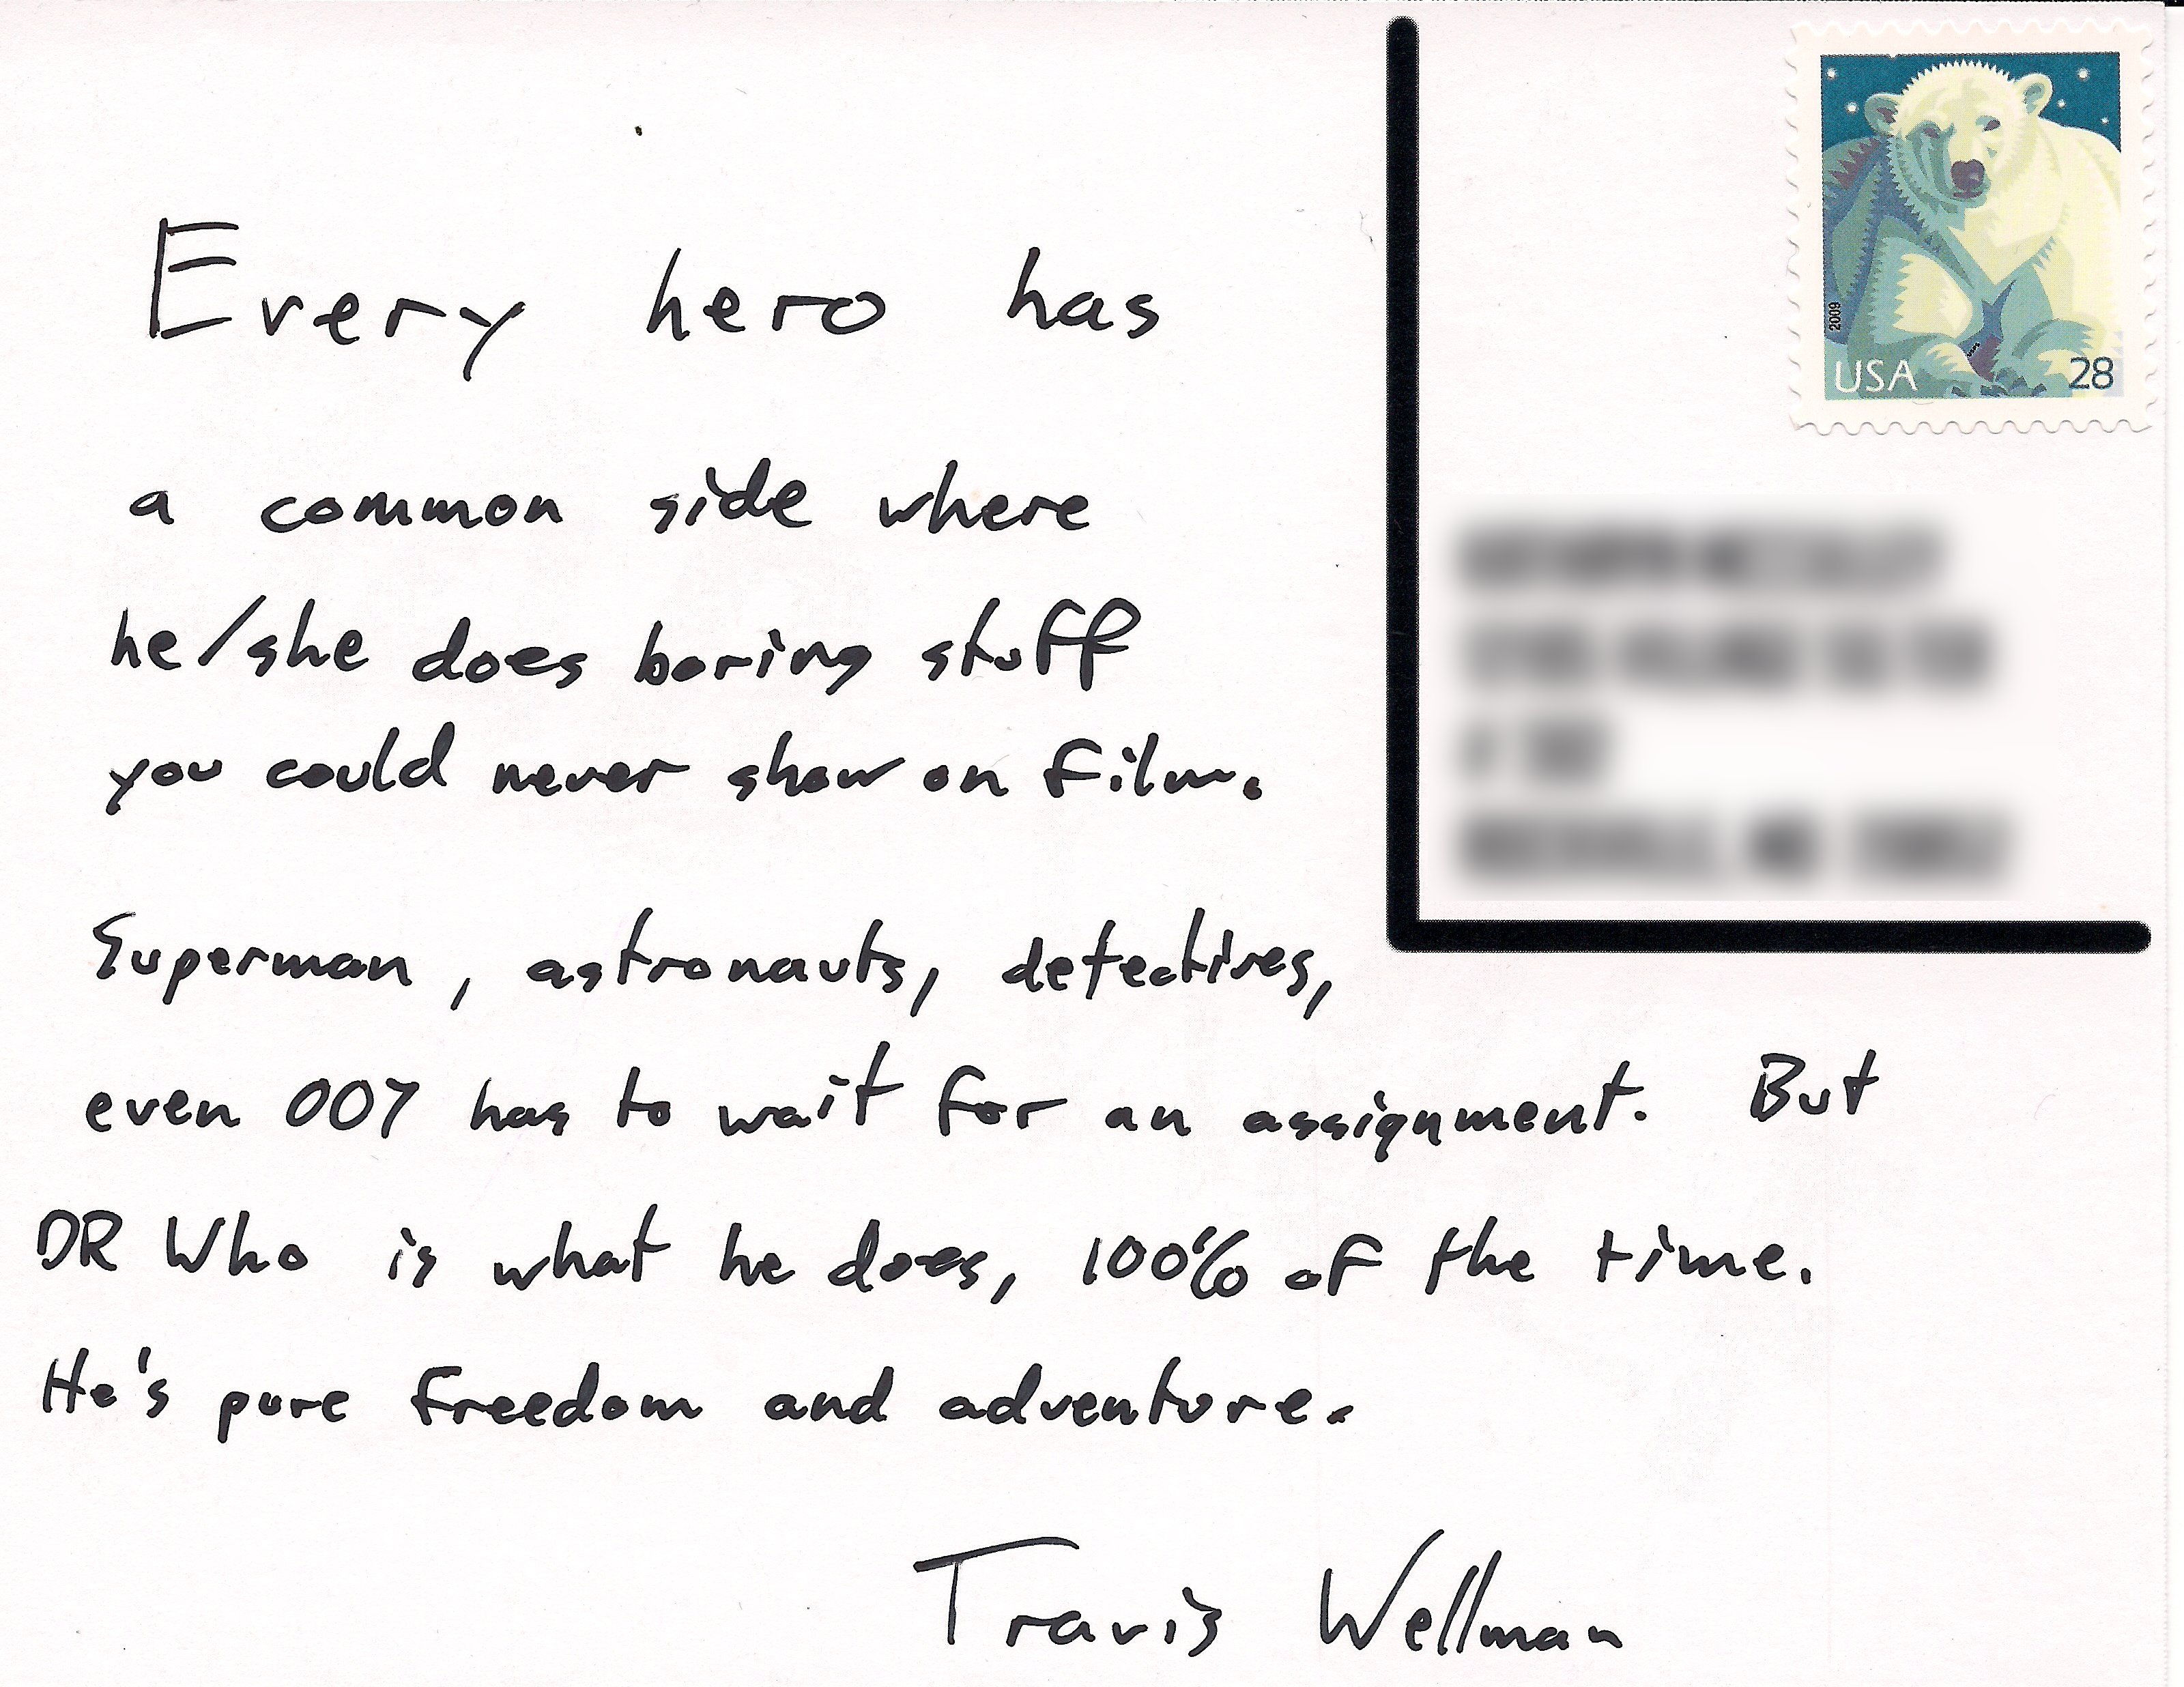 Every hero has
a common side where
he/she does boring stuff
you could never show on film.
Superman, astronauts, detectives,
even 007 has to wait for an assignment. But
DR Who is what he does, 100% of the time.
He's pure freedom and adventure.
Travis Wellman
2009
USA 28